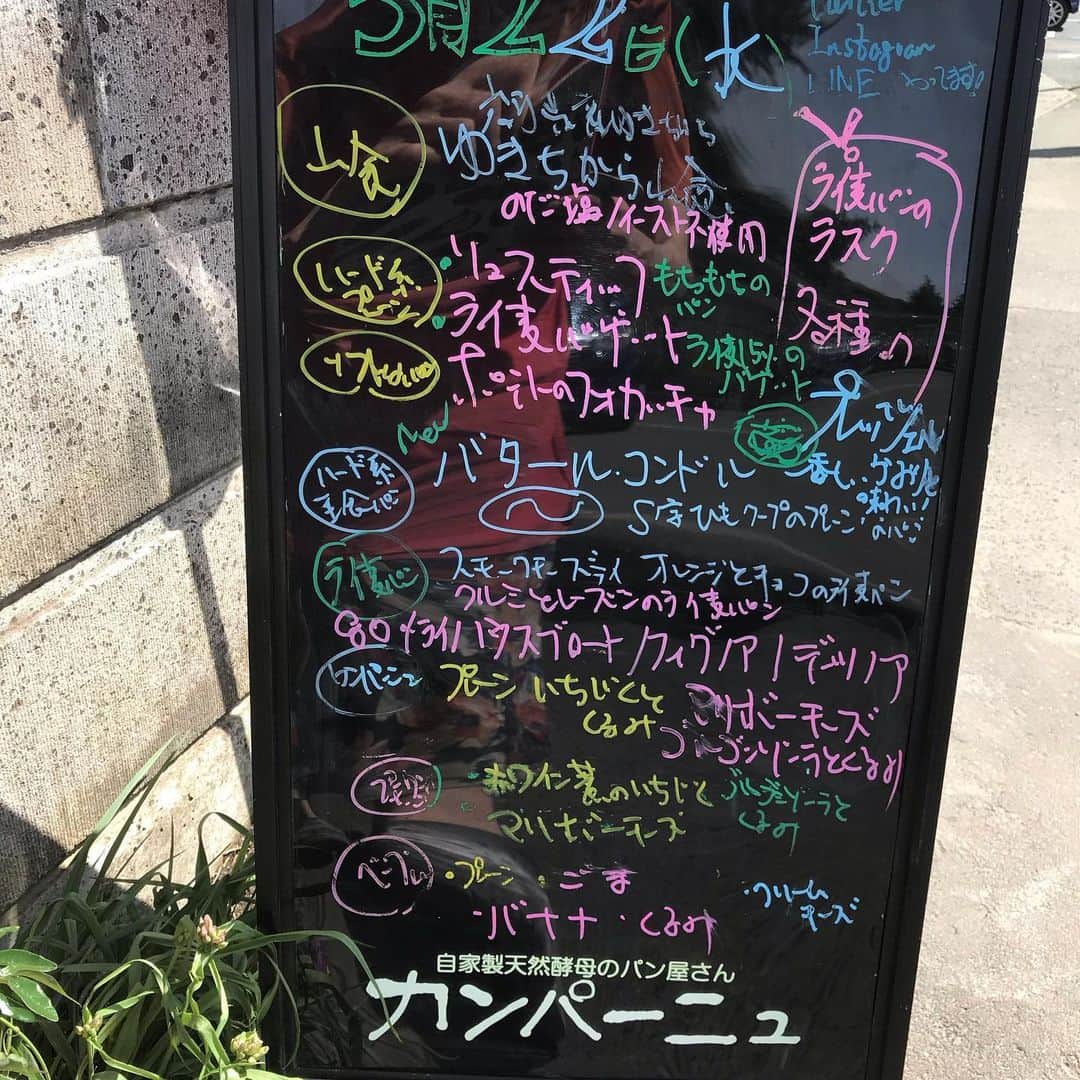 3月22日(水)
Twitter
Instagram
LINE やってます!
山食
ゆきちから山食
のだ塩/イースト不使用
ライ麦パンの
ラスク
各種
ハード系
プレーン
・リュスティック
もちもちの
パン
・ライ麦バゲット
ライ麦15%の
バゲット
ポテトのフォカッチャ
New
バタール・コンドル
ハード系
S字ひもクープのプレーン
プレッツェル
味わい
のパン
ライ麦パン
スモークチーズライ オレンジとチョコのライ麦パン
クルミとレーズンのライ麦パン
ライハウスブロート/フィグノア/デュリノア
カンパーニュ
プレーン いちじくと
くるみ
マリボーチーズ
ゴルゴンゾーラとくるみ
・赤ワイン煮のいちじくと
マリボーチーズ
ゴルゴンゾーラと
くるみ
ベーグル
・プレーン・ごま
バナナ・くるみ
・クリーム
チーズ
自家製天然酵母のパン屋さん
カンパーニュ